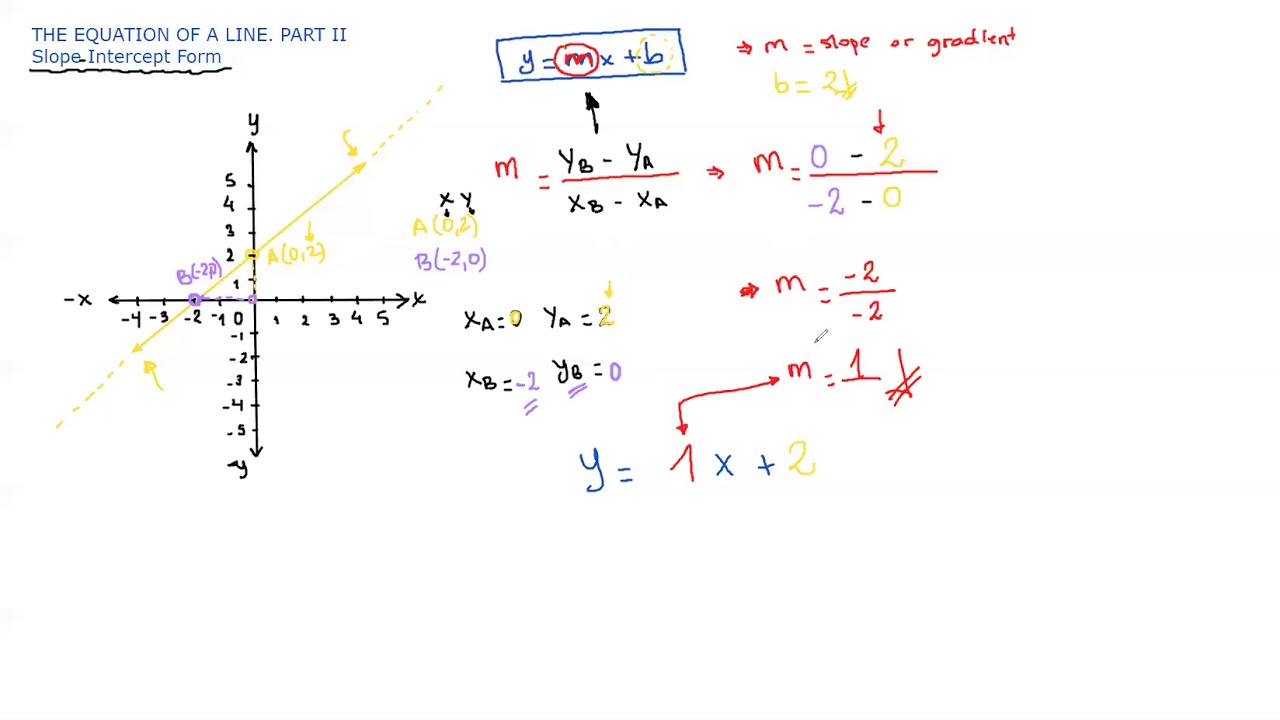 THE EQUATION OF A LINE. PART II
Slope-Intercept Form
y = mx + b
⇒ m = slope or gradient
b = 2
m = YB - YA / XB - XA ⇒ m = 0 - 2 / -2 - 0
X Y
A(0,2)
B(-2,0)
⇒ m = -2 / -2
XA = 0 YA = 2
XB = -2 YB = 0
m = 1
y = 1x + 2
y
5
4
3
2 A(0,2)
1
-x -4 -3 -2 -1 0 1 2 3 4 5 x
-1
-2
-3
-4
-5
-y